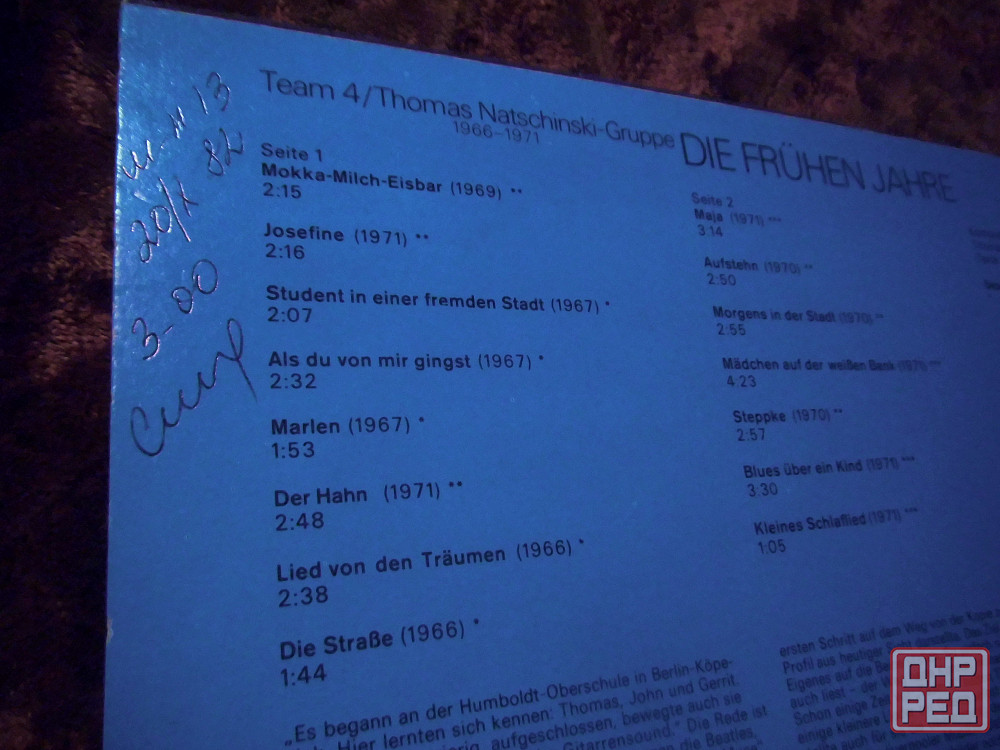 Team 4/Thomas Natschinski-Gruppe DIE FRÜHEN JAHRE
1966–1971
Seite 1
Mokka-Milch-Eisbar (1969) **
2:15
Josefine (1971) **
2:16
Student in einer fremden Stadt (1967) *
2:07
Als du von mir gingst (1967) *
2:32
Marlen (1967) *
1:53
Der Hahn (1971) **
2:48
Lied von den Träumen (1966) *
2:38
Die Straße (1966) *
1:44
Seite 2
Maja (1971) ***
3:14
Aufstehn (1970) **
2:50
Morgens in der Stadt (1970) **
2:55
Mädchen auf der weißen Bank (1971) ***
4:23
Steppke (1970) **
2:57
Blues über ein Kind (1971) ***
3:30
Kleines Schlaflied (1971) ***
1:05
„Es begann an der Humboldt-Oberschule in Berlin-Köpe-
Hier lernten sich kennen: Thomas, John und Gerrit.
aufgeschlossen, bewegte auch sie
Gitarrensound." Die Rede ist
die Beatles,
ersten Schritt auf dem Weg von der Kopie
Profil aus heutiger Sicht
Eigenes auf die
auch liest – der
Schon einige
einige kleinere
13
20/X 82
3-00
ДНР
РЕД